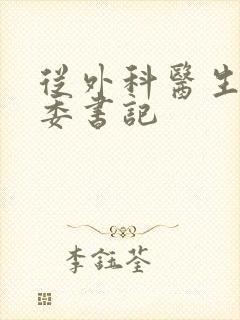 從外科醫生
委書記
李鈺荃